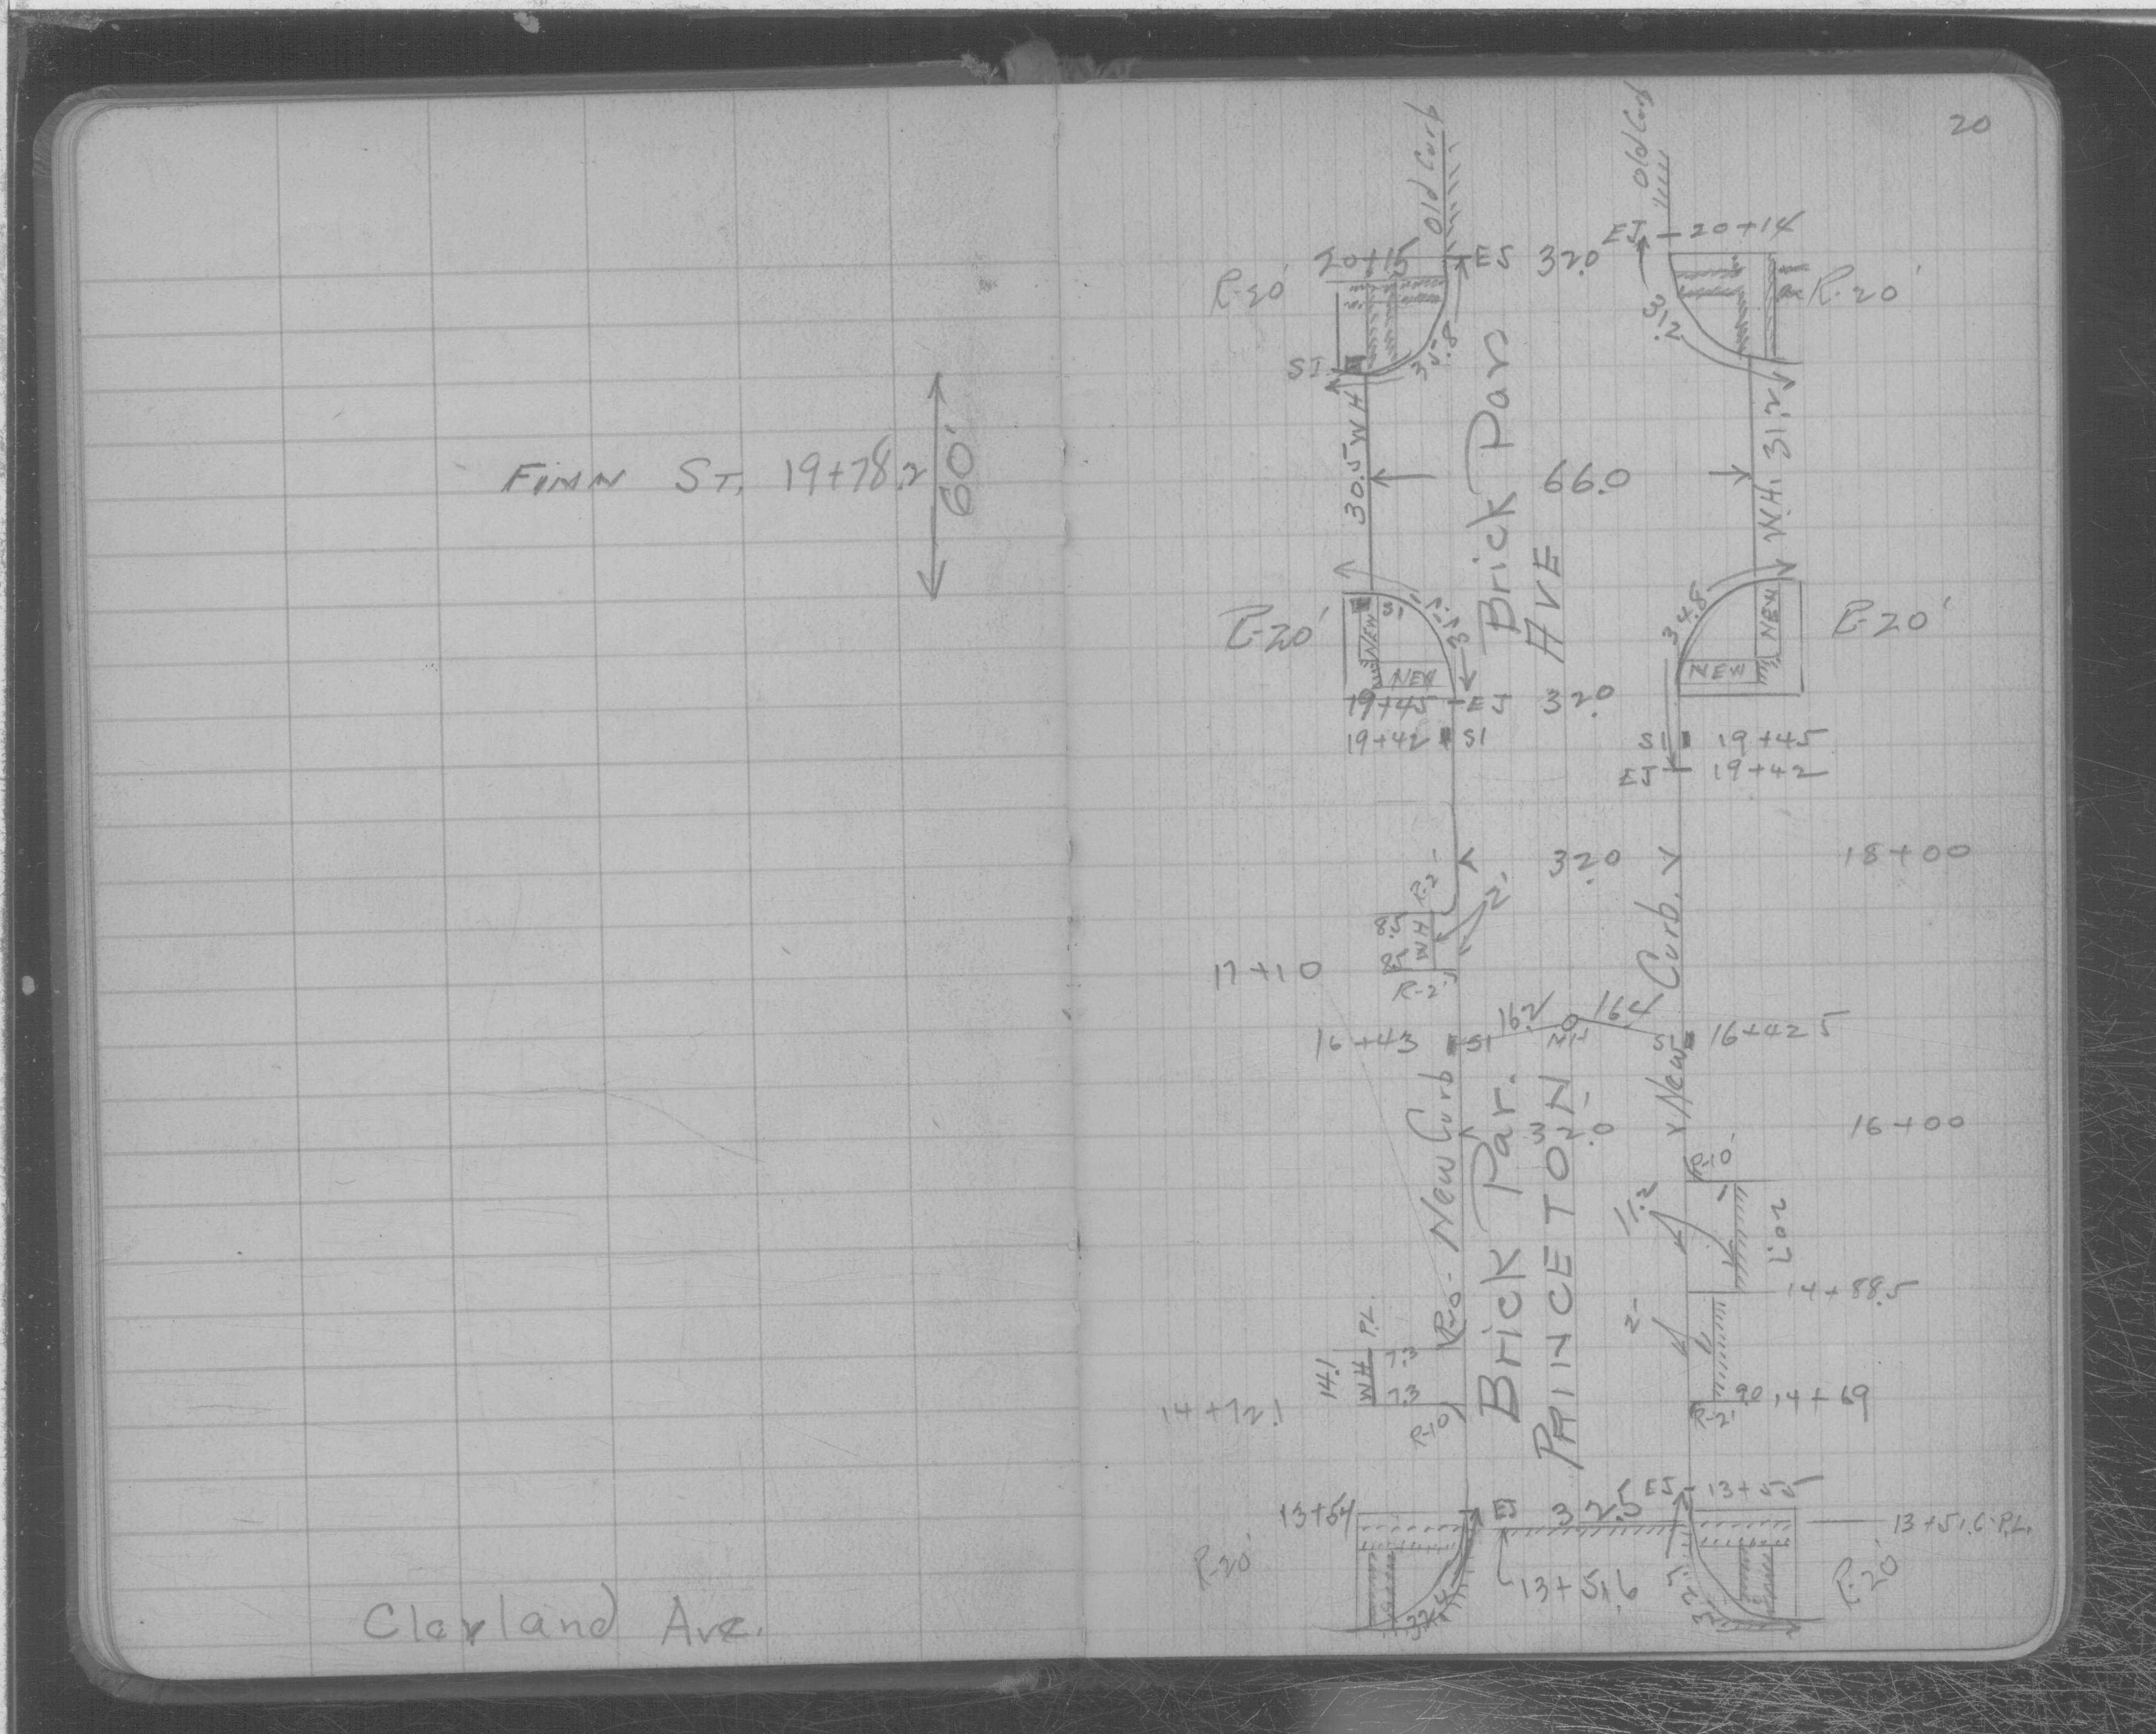 20
Old Curb
Old Curb
EJ 20+14
20+15 EJ 32.0
R-20'
R-20'
31.2
35.8
SI
30.5 WH
W.H. 31.2
Brick Pav
66.0
FINN ST. 19+78.2
60'
AVE
R-20'
SI
NEW
NEW
34.8
NEW
NEW
R-20'
19+45 EJ 32.0
19+42 SI
SI 19+45
EJ 19+42
32.0
18+00
R-2'
2'
8.5
8.5
WH
R-2'
17+10
New Curb
16+43 SI
16.2
MH
16.4
SI 16+42.5
32.0
16+00
New Curb
Brick Pav.
PRINCETON
R-10'
11.2
14+88.5
2'
14.1
WH PL.
7.3
7.3
R-10'
14+72.1
9.0 14+69
R-2'
13+54 EJ 32.5 EJ 13+55
13+51.6 P.L.
R-20'
13+51.6
32.5
R-20'
Clevland Ave.